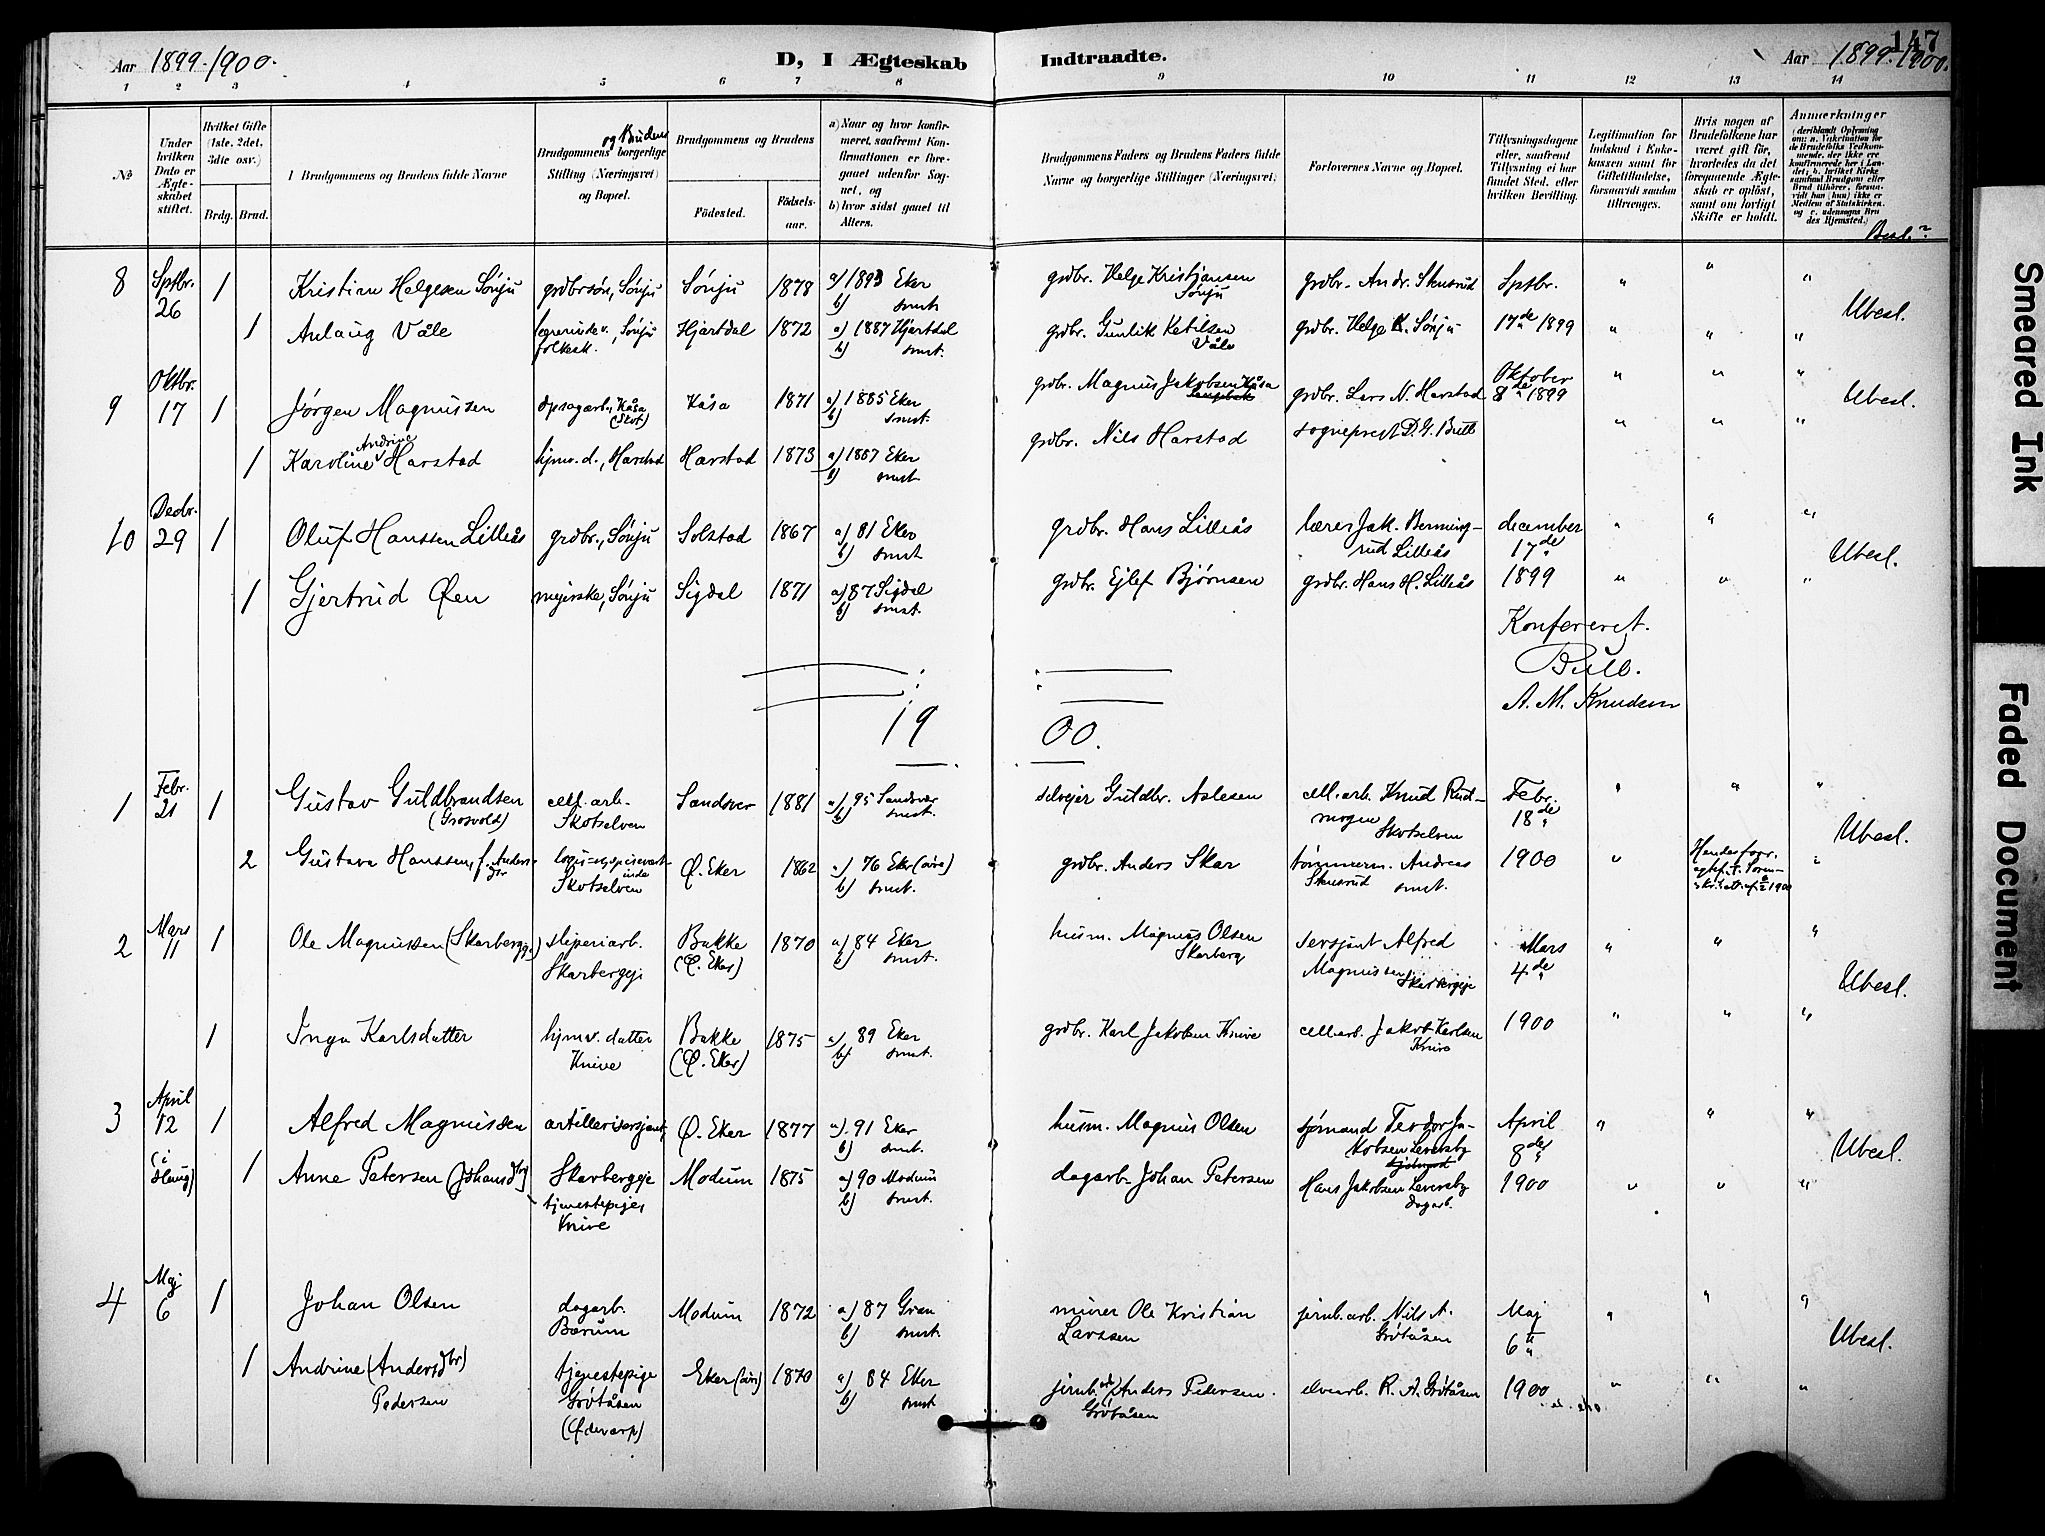 Aar 1899-1900.
D, I Ægteskab Indtraadte.
147
Aar 1899-1900.
1 2 3 4 5 6 7 8 9 10 11 12 13 14
No
Under hvilken Dato er Ægteskabet stiftet.
Hvilket Gifte (1ste, 2det, 3die osv.)
Brdg. Brud.
I Brudgommens og Brudens fulde Navne
Brudgommens og Brudens borgerlige Stilling (Næringsvei) og Bopæl.
Brudgommens og Brudens
Födested.
Födselsaar.
a) Naar og hvor konfirmeret, saafremt Konfirmationen er foregaaet udenfor Sognet, og
b) hvor sidst gaaet til Alters.
Brudgommens Faders og Brudens Faders fulde Navne og borgerlige Stillinger (Næringsvei)
Forlovernes Navne og Bopæl.
Tillysningsdagene eller, saafremt Tillysning ei har fundet Sted, efter hvilken Bevilling.
Legitimation for Indskud i Enkekassen samt for Giftetilladelse, forsaavidt saadan tiltrænges.
Hvis nogen af Brudefolkene har været gift för, hvorledes da det foregaaende Ægteskab er oplöst, samt om lovligt Skifte er holdt.
Anmerkninger
Besl.?
8 Sptbr. 26 1 Kristian Helgesen Sønju grdbrsøn, Sønju Sønju 1878 a) 1893 Eker b) smst. grdbr. Helge Kristjansen Sønju grdbr. Andr. Skusrud Sptbr. " " " Ubesl.
1 Anlaug Våle lærerinde v. Sønju folkesk. Hjartdal 1872 a) 1887 Hjartdal b) smst. grdbr. Gunlik Ketilsen Våle grdbr. Helge K. Sønju 17de 1899 " " "
9 Oktbr. 17 1 Jørgen Magnussen opsagarb., Kåsa (Skot) Kåsa 1871 a) 1885 Eker b) smst. grdbr. Magnus Jakobsen Kåsa grdbr. Lars N. Harstad Oktober 8de 1899 " " " Ubesl.
1 Karoline Andrine Harstad hjmv. d., Harstad Harstad 1873 a) 1887 Eker b) smst. grdbr. Nils Harstad sogneprest D. G. Bull " " "
10 Decbr. 29 1 Oluf Hanssen Lilleås grdbr., Sønju Solstad 1867 a) 81 Eker b) smst. grdbr. Hans Lilleås lærer Jak. Bermingrud Lilleås december 17de " " " Ubesl.
1 Gjertrud Øen mejerske, Sønju Sigdal 1871 a) 87 Sigdal b) smst. grdbr. Ejlef Bjørnsen grdbr. Hans H. Lilleås 1899 " " "
Konfereret.
Bull.
A. M. Knudsen
1900.
1 Febr. 21 1 Gustav Guldbrandsen (Grosvold) cell. arb. Skotselven Sandsver 1881 a) 95 Sandsvær b) smst. selvejer Guldbr. Aslesen cell. arb. Knud Rudmogen Skotselven Febr. 18de " " " Ubesl.
2 Gustava Hanssen, f. Andersdtr Skotselven Ø. Eker 1862 a) 76 Eker (øvre) b) smst. grdbr. Anders Skar tømmerm. Andreas Skusrud smst. 1900 "
2 Mars 11 1 Ole Magnussen (Skarbergeje) sliperiarb. Skarbergeje Bakke (Ø. Eker) 1870 a) 84 Eker b) smst. husm. Magnus Olsen Skarberg sersjant Alfred Magnussen Skarbergeje Mars 4de " " " Ubesl.
1 Inga Karlsdatter hjmv. datter Knive Bakke (Ø. Eker) 1875 a) 89 Eker b) smst. grdbr. Karl Jakobsen Knive cell. arb. Jakob Karlsen Knive 1900 " " "
3 April 12 (i Haug) 1 Alfred Magnussen artillerisersjant, Skarbergeje Ø. Eker 1877 a) 91 Eker b) smst. husm. Magnus Olsen sjømand Teodor Jakobsen Leversby April 8de " " " Ubesl.
1 Anne Petersen (Johansdtr) tjenestepige, Knive Modum 1875 a) 90 Modum b) smst. dagarb. Johan Petersen Hans Jakobsen Leversby dagarb. 1900 " " "
4 Maj 6 1 Johan Olsen dagarb. Bærum Modum 1872 a) 87 Gran b) smst. murer Ole Kristian Larssen jernb. arb. Nils A. Grøtåsen Maj 6te " " " Ubesl.
1 Andrine (Andersdtr) Pedersen tjenestepige Grøtåsen Eker (øvre) 1870 a) 84 Eker b) smst. jernb. arb. Anders Pedersen Grøtåsen elvearb. R. A. Grøtåsen 1900 " " "
Smeared Ink
Faded Document